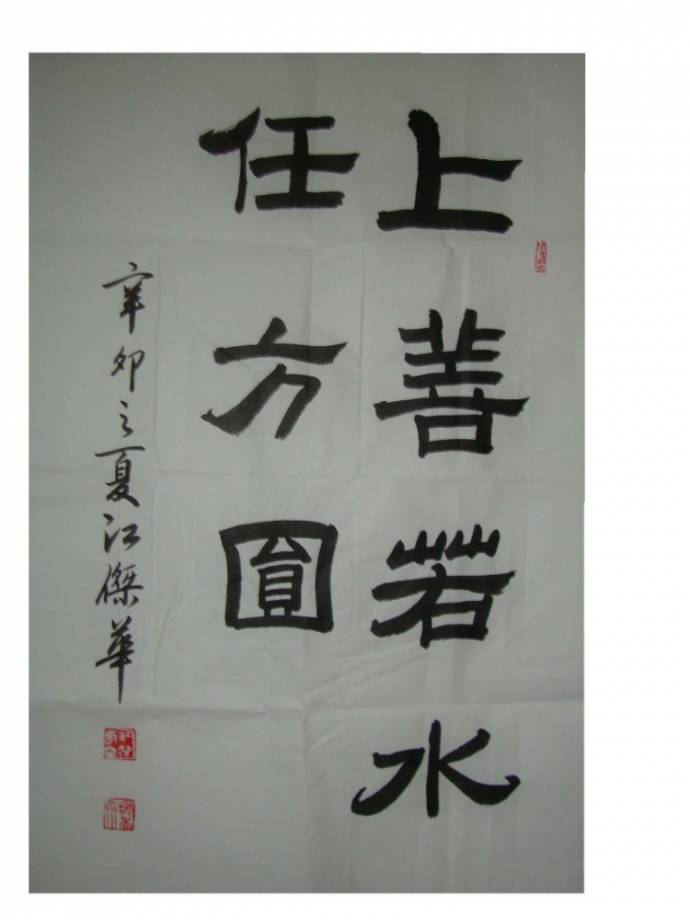 上善若水
任方圓
辛卯之夏江傑華